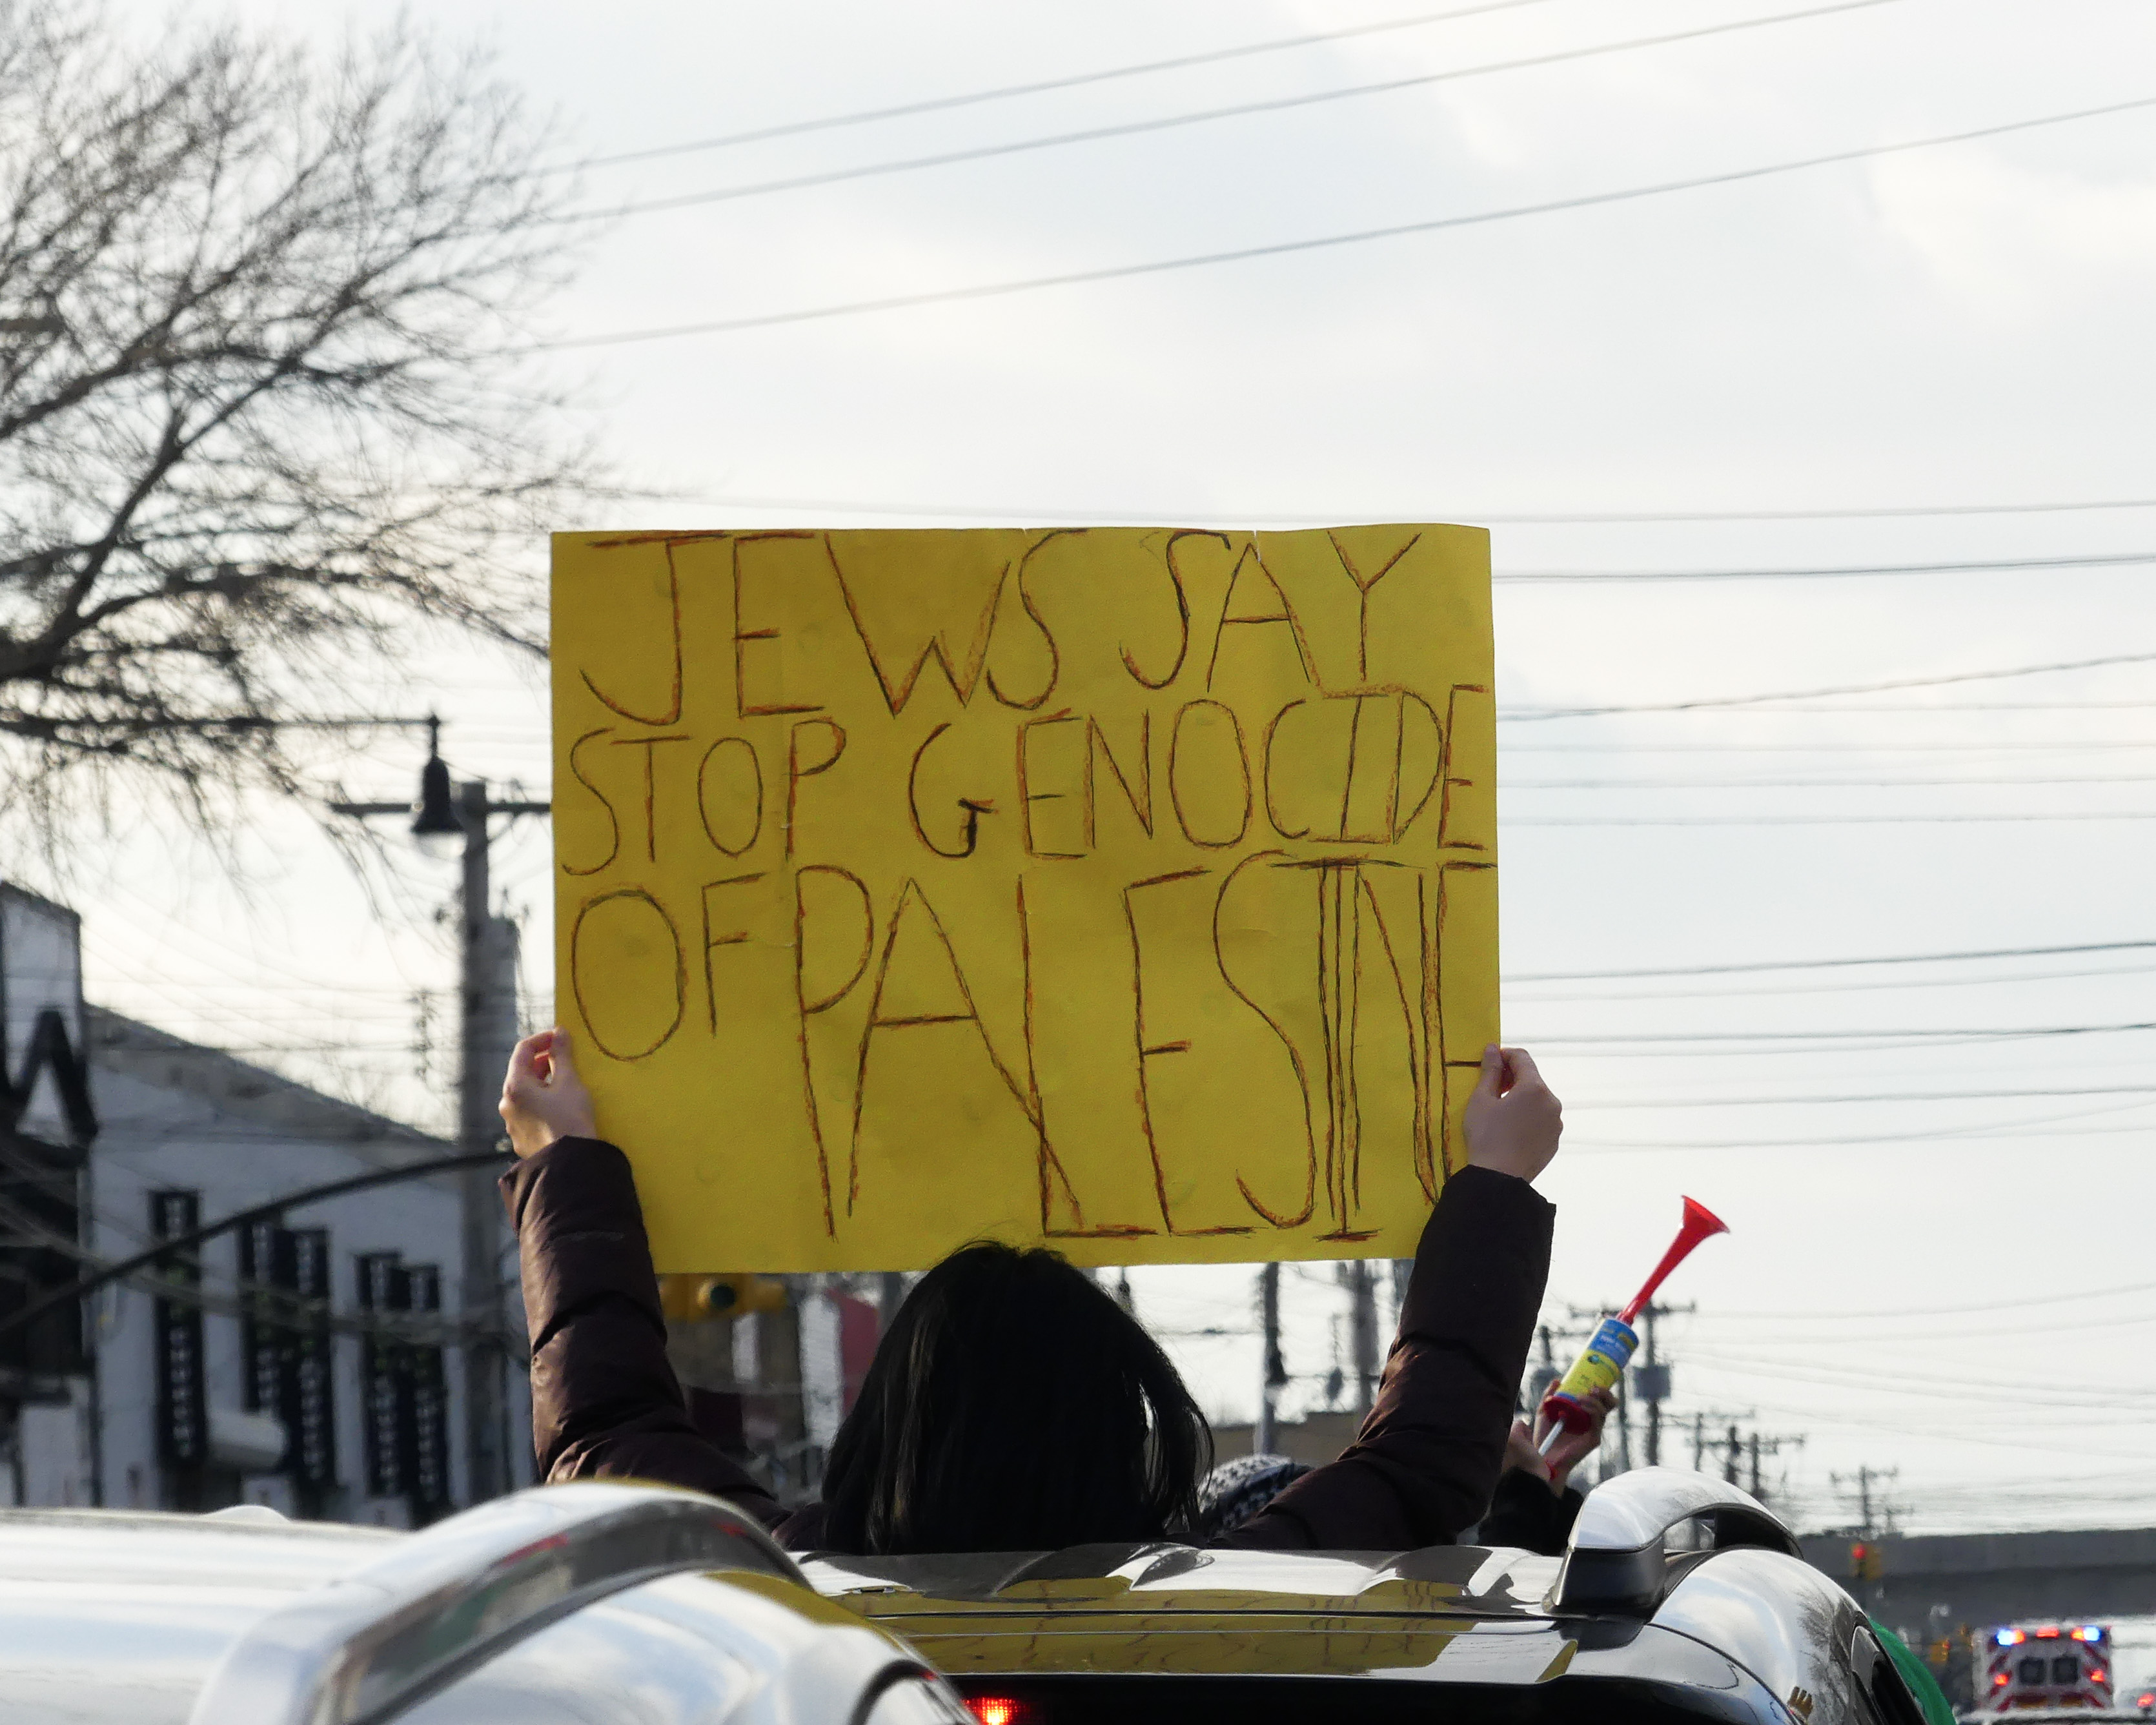 JEWS SAY
STOP GENOCIDE
OF PALESTINE